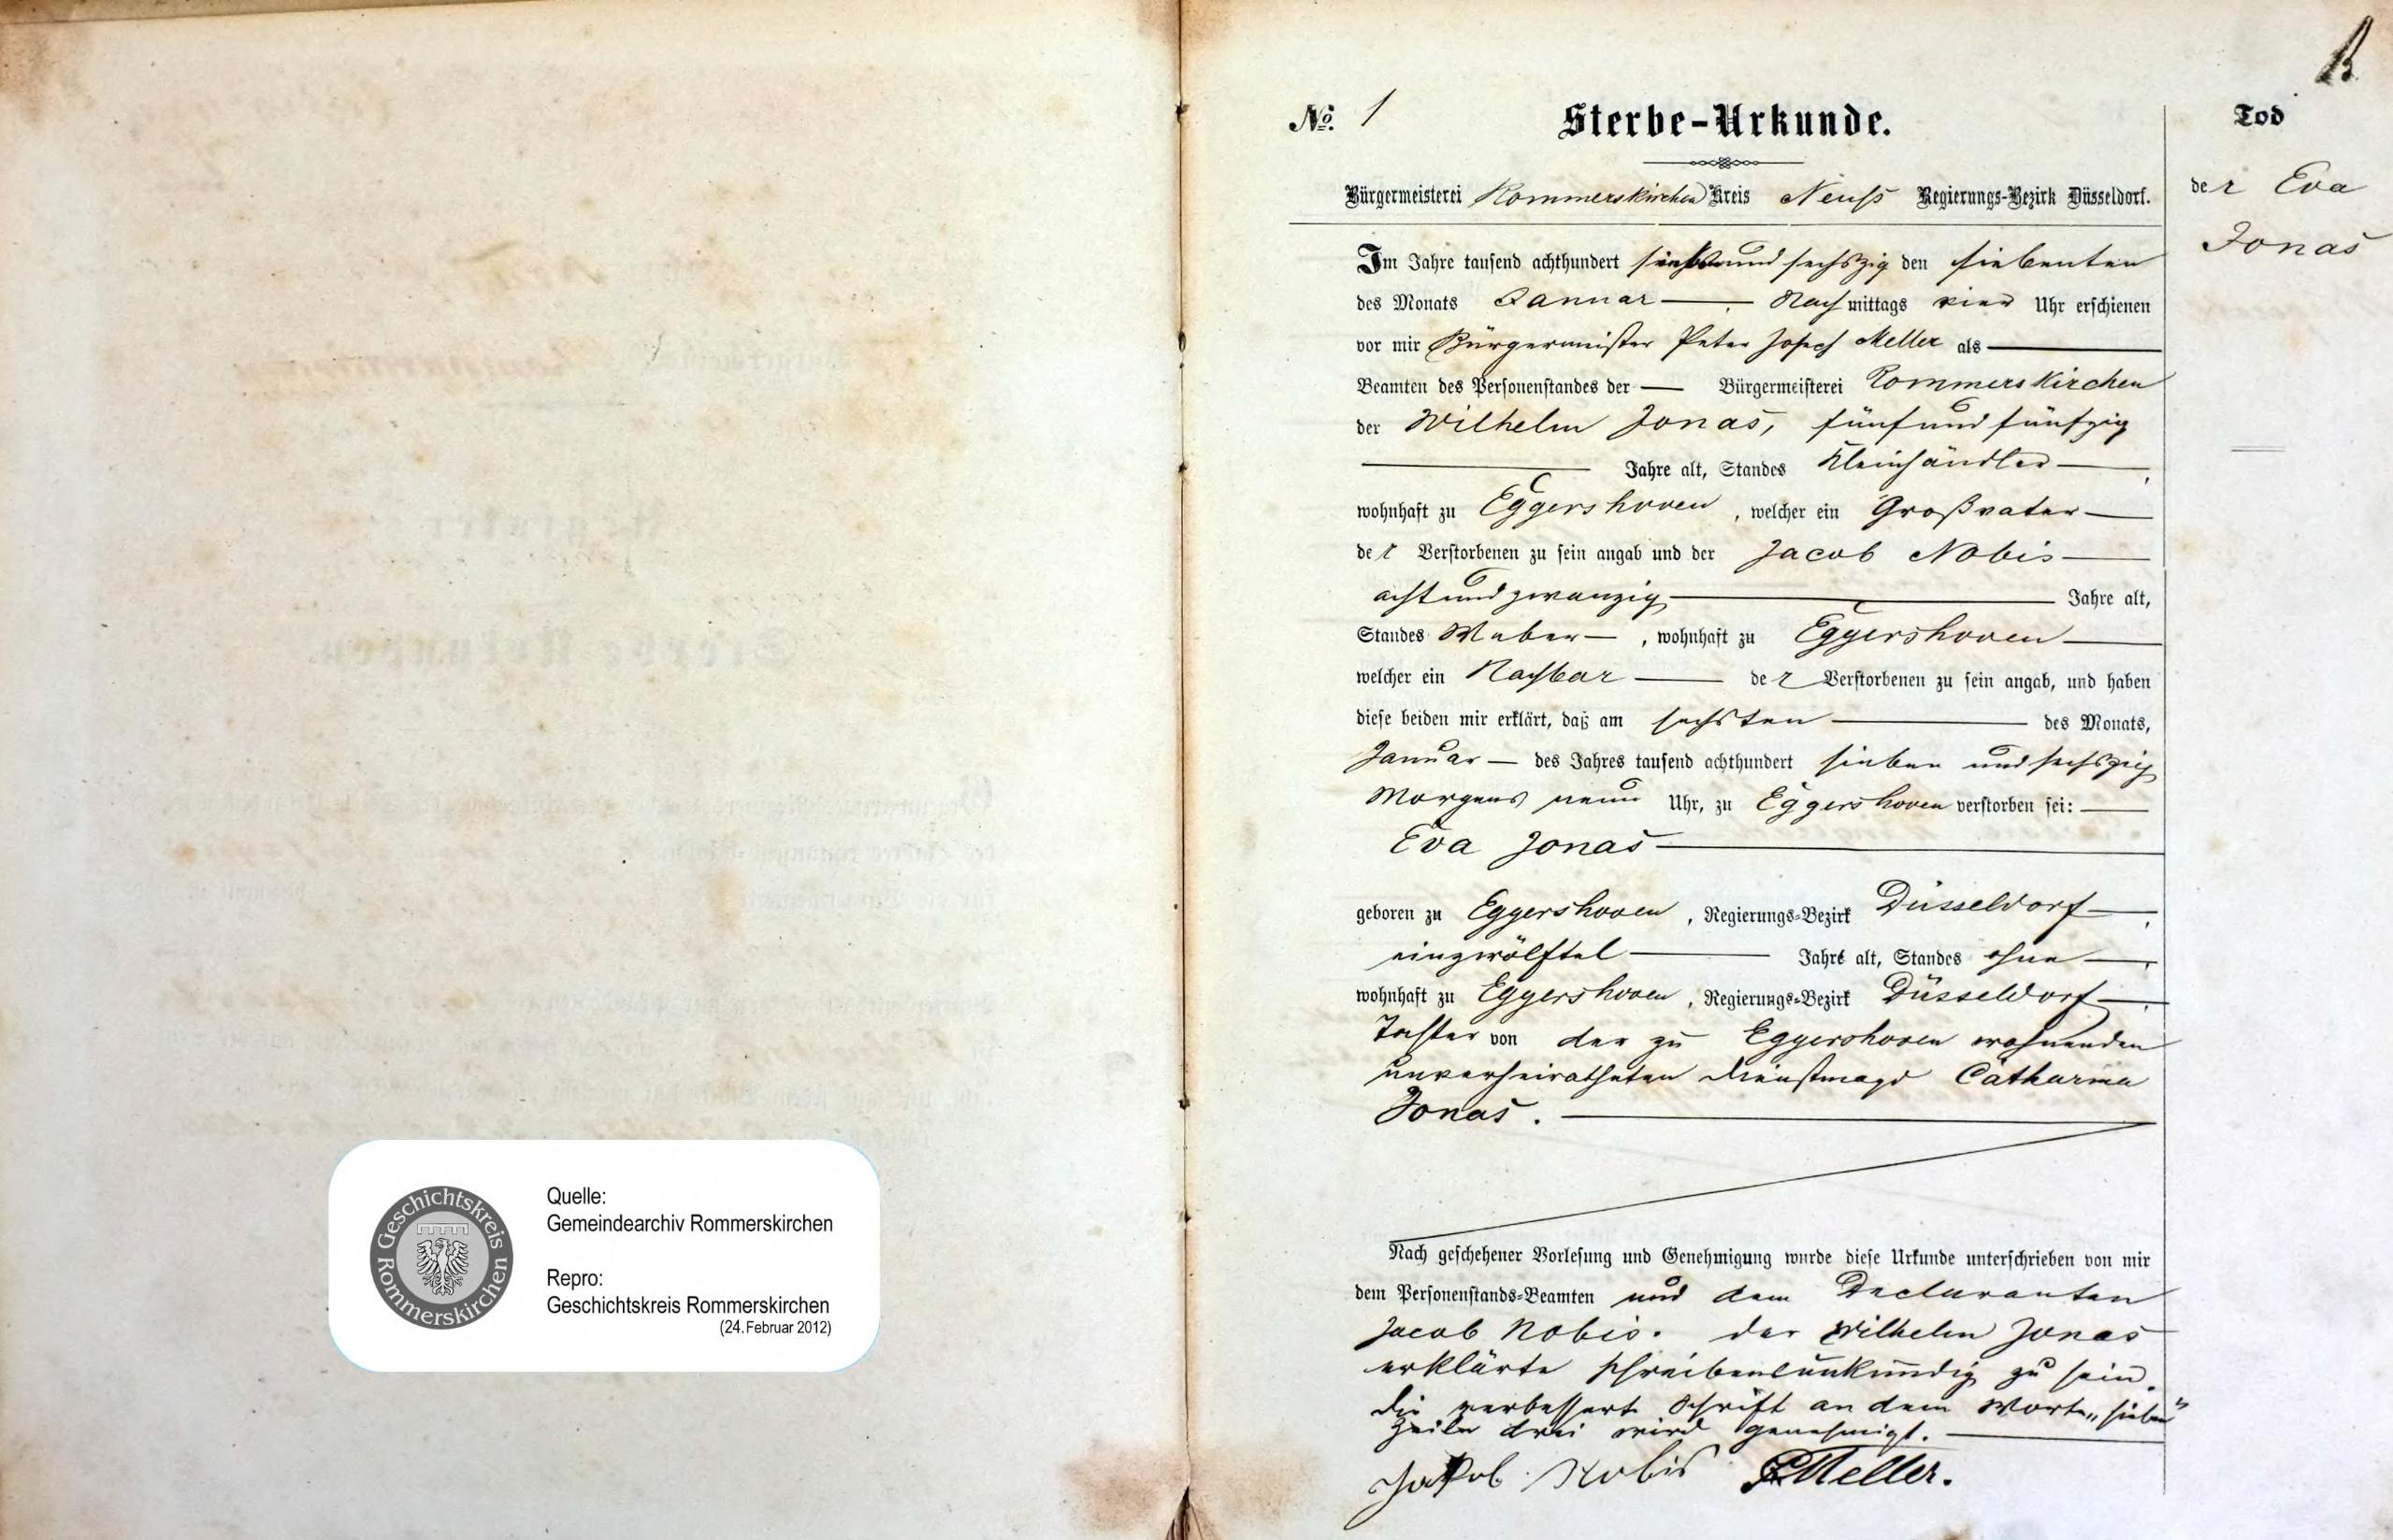 Geschichtskreis Rommerskirchen
Quelle:
Gemeindearchiv Rommerskirchen
Repro:
Geschichtskreis Rommerskirchen
(24.Februar 2012)
No. 1
Sterbe-Urkunde.
Bürgermeisterei Rommerskirchen Kreis Neuss Regierungs-Bezirk Düsseldorf.
Im Jahre tausend achthundert sieben und sechszig den siebenten
des Monats Januar — Nachmittags vier Uhr erschienen
vor mir Bürgermeister Peter Josef Meller als
Beamten des Personenstandes der — Bürgermeisterei Rommerskirchen
der Wilhelm Jonas, fünfundfünfzig
Jahre alt, Standes Kleinhändler —,
wohnhaft zu Eggershoven, welcher ein Großvater —
der Verstorbenen zu sein angab und der Jacob Nobis —
achtundzwanzig — Jahre alt,
Standes Weber —, wohnhaft zu Eggershoven —
welcher ein Nachbar — der Verstorbenen zu sein angab, und haben
diese beiden mir erklärt, daß am sechsten — des Monats,
Januar — des Jahres tausend achthundert sieben und sechszig
Morgens neun Uhr, zu Eggershoven verstorben sei: —
Eva Jonas —
geboren zu Eggershoven, Regierungs-Bezirk Düsseldorf —,
einzwölftel — Jahre alt, Standes ohne —,
wohnhaft zu Eggershoven, Regierungs-Bezirk Düsseldorf —,
Tochter von der zu Eggershoven wohnenden
unverheiratheten Dienstmagd Catharina
Jonas. —
Nach geschehener Vorlesung und Genehmigung wurde diese Urkunde unterschrieben von mir
dem Personenstands-Beamten und dem Declaranten
Jacob Nobis. Der Wilhelm Jonas
erklärte schreibensunkundig zu sein.
Die verbessert Schrift an dem Worte „sieben"
Zeile drei wird genehmigt. —
Jakob Nobis PMeller.
Tod
der Eva
Jonas